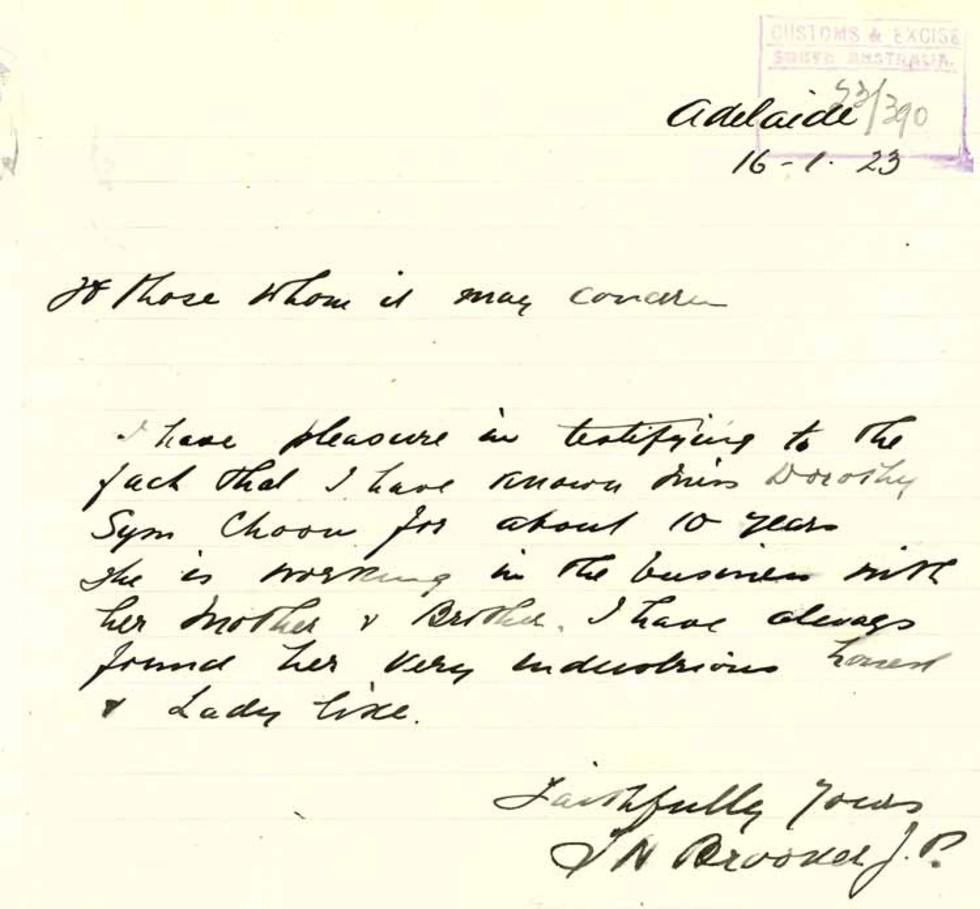 CUSTOMS & EXCISE
SOUTH AUSTRALIA.
23/390
Adelaide
16-1.23
To those whom it may concern
I have pleasure in testifying to the
fact that I have known Miss Dorothy
Sym Choon for about 10 years
She is working in the business with
her Mother & Brother. I have always
found her very industrious honest
& Lady like.
Faithfully Yours
Brooker J.P.